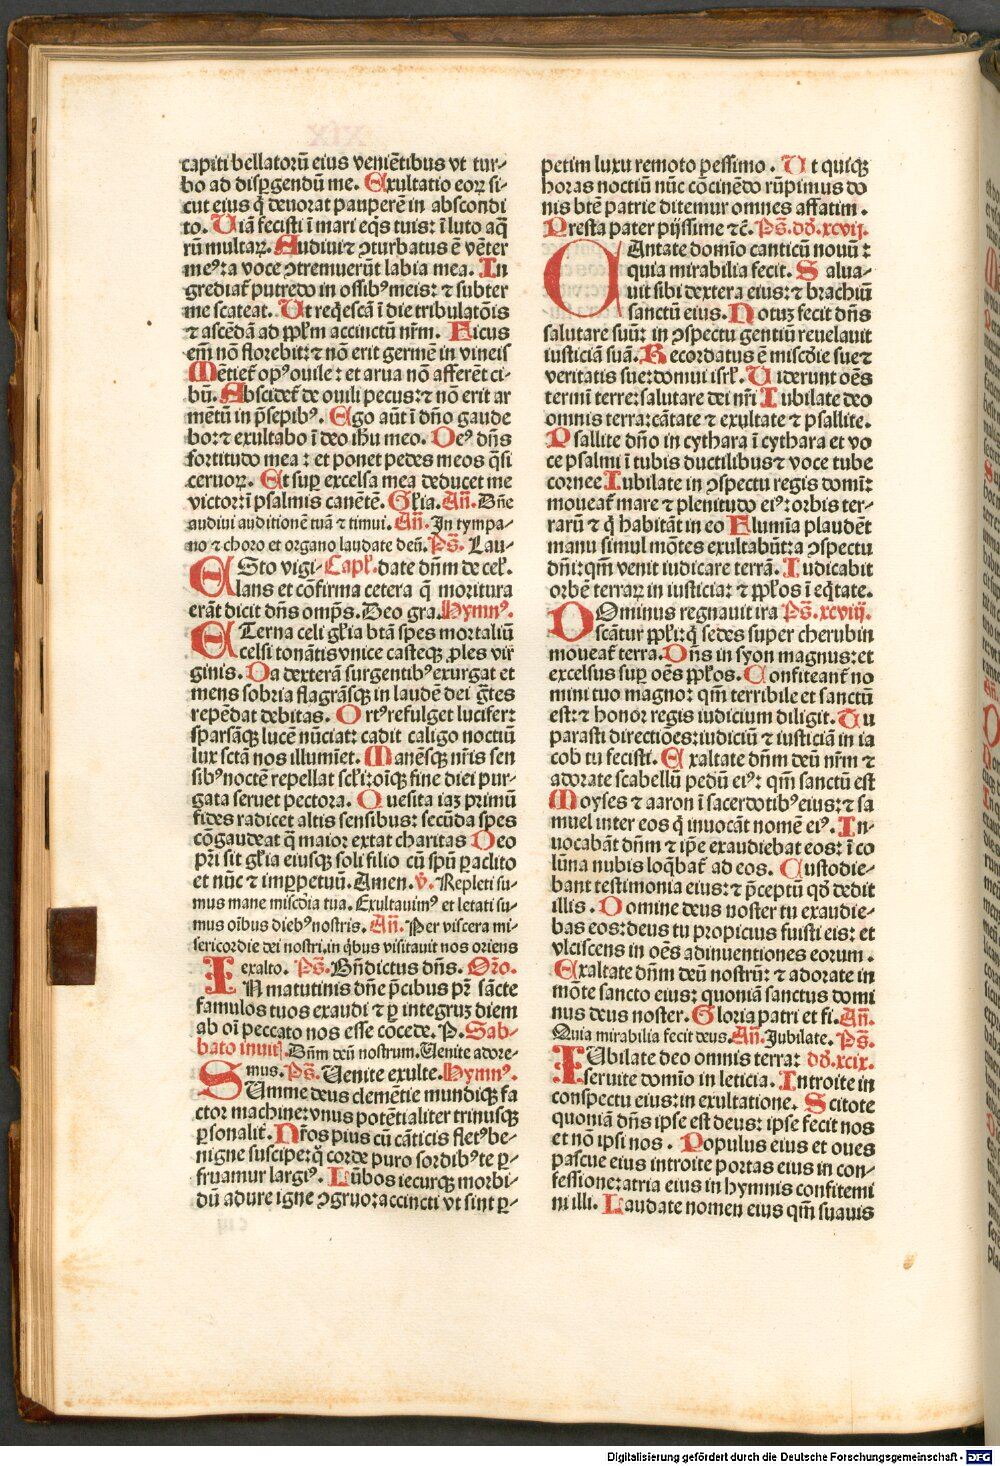 capiti bellatorū eius veniētibus vt tur-
bo ad disꝑgendū me. Exultatio eoꝝ si-
cut eius q̄ deuorat pauperē in abscondi
to. Uiā fecisti ī mari eqs tuis: ī luto aq̄
rū multaꝝ. Audiui ⁊ ꝯturbatus ē vēter
meꝰ: a voce ꝯtremuerūt labia mea. In
grediat᷑ putredo in ossibꝰ meis: ⁊ subter
me scateat. Ut reqescā ī die tribulatōis
⁊ ascēdā ad ppl̄m accinctū nr̄m. Ficus
em̄ nō florebit: ⁊ nō erit germē in vineis
Mētiet᷑ opꝰ oliue: et arua nō afferēt ci-
bū. Abscidet᷑ de ouili pecus: ⁊ nō erit ar
mētū in p̄sepibꝰ. Ego aūt ī dn̄o gaude
bo: ⁊ exultabo ī deo ih̄u meo. Deꝰ dn̄s
fortitudo mea: et ponet pedes meos q̄si
ceruoꝝ. Et suꝑ excelsa mea deducet me
victor: ī psalmis canētē. Gl̄ia. Añ. Dn̄e
audiui auditionē tuā ⁊ timui. Añ. In tympa-
no ⁊ choro et organo laudate deū. Ps̄. Lau-
ESto vigi- Capl̄. date dn̄m de cel̄.
lans et cōfirma cetera q̄ moritura
erāt dicit dn̄s omp̄s. Deo gra. Hymnꝰ.
ETerna celi gl̄ia btā spes mortaliū
celsi tonātis vnice casteqꝫ ꝓles vir
ginis. Da dexterā surgentibꝰ exurgat et
mens sobria flagrāsqꝫ in laudē dei gr̄tes
repēdat debitas. Ortꝰ refulget lucifer:
sparsāqꝫ lucē nūciat: cadit caligo noctiū
lux sctā nos illumiet. Manēsqꝫ nr̄is sen
sibꝰ noctē repellat scl̄i: oīqꝫ fine diei pur-
gata seruet pectora. Quesita iaꝫ primū
fides radicet altis sensibus: secūda spes
cōgaudeat q̄ maior extat charitas Deo
pr̄i sit gl̄ia eiusqꝫ soli filio cū spū ꝑaclito
et nūc ⁊ imꝑpetuū. Amen. v̄. Repleti su-
mus mane miscdīa tua. Exultauimꝰ et letati su-
mus oībus diebꝰ nostris. Añ. Per viscera mi-
sericordie dei nostri, in q̄bus visitauit nos oriens
exalto. Ps̄. Bn̄dictus dn̄s. Oro.
IN matutinis dn̄e p̄cibus pr̄ sācte
famulos tuos exaudi ⁊ ꝑ integruꝫ diem
ab oī peccato nos esse cocede. P. Sab-
bato inuit. Dn̄m deū nostrum. Uenite adore-
mus. Ps̄. Uenite exulte. Hymnꝰ.
SUmme deus clemētie mundiqꝫ fa
ctor machine: vnus potētialiter trinusqꝫ
ꝑsonalit᷑. Nr̄os pius cū cāticis fletꝰ be-
nigne suscipe: q̄ corde puro sordibꝰ te ꝑ-
fruamur largiꝰ. Lūbos iecurqꝫ morbi-
dū adure igne ꝯgruo: accincti vt sint ꝑ-
petim luxu remoto pessimo. Ut quiqꝫ
horas noctiū nūc cōcinēdo rūpimus do
nis btē patrie ditemur omnes affatim.
Presta pater pijssime ⁊c̄. Ps̄. dd̄. xcvij.
CAntate domīo canticū nouū:
quia mirabilia fecit. Salua-
uit sibi dextera eius: ⁊ brachiū
sanctū eius. Notuꝫ fecit dn̄s
salutare suū: in ꝯspectu gentiū reuelauit
iusticiā suā. Recordatus ē miscdīe sue ⁊
veritatis sue: domui isrl̄. Uiderunt oēs
termī terre: salutare dei nr̄i Iubilate deo
omnis terra: cātate ⁊ exultate ⁊ psallite.
Psallite dn̄o in cythara ī cythara et vo
ce psalmi ī tubis ductilibus ⁊ voce tube
cornee Iubilate in ꝯspectu regis domī:
moueat᷑ mare ⁊ plenitudo eiꝰ: orbis ter-
rarū ⁊ q̄ habitāt in eo Flumīa plaudēt
manu simul mōtes exultabūt: a ꝯspectu
dn̄i: qm̄ venit iudicare terrā. Iudicabit
orbē terraꝝ in iusticia: ⁊ ppl̄os ī eq̄tate.
DOminus regnauit ira Ps̄. xcviij.
scātur ppl̄i: q̄ sedes super cherubin
moueat᷑ terra. Dn̄s in syon magnus: et
excelsus suꝑ oēs ppl̄os. Confiteant᷑ no
mini tuo magno: qm̄ terribile et sanctū
est: ⁊ honor regis iudicium diligit. Tu
parasti directiōes: iudiciū ⁊ iusticiā in ia
cob tu fecisti. Exaltate dn̄m deū nr̄m ⁊
adorate scabellū pedū eiꝰ: qm̄ sanctū est
Moyses ⁊ aaron ī sacerdotibꝰ eius: ⁊ sa
muel inter eos q̄ inuocāt nomē eiꝰ. In-
uocabāt dn̄m ⁊ ip̄e exaudiebat eos: ī co
lūna nubis loq̄bat᷑ ad eos. Custodie-
bant testimonia eius: ⁊ p̄ceptū qd̄ dedit
illis. Domine deus noster tu exaudie-
bas eos: deus tu propicius fuisti eis: et
vlciscens in oēs adinuentiones eorum.
Exaltate dn̄m deū nostrū: ⁊ adorate in
mōte sancto eius: quoniā sanctus domi
nus deus noster. Gloria patri et fi. Añ.
Quia mirabilia fecit deus. Añ. Jubilate. Ps̄.
IUbilate deo omnis terra: dd̄. xcix.
seruite domīo in leticia. Introite in
conspectu eius: in exultatione. Scitote
quoniā dn̄s ipse est deus: ipse fecit nos
et nō ipsi nos. Populus eius et oues
pascue eius introite portas eius in con-
fessione: atria eius in hymnis confitemi
ni illi. Laudate nomen eius qm̄ suauis
Digitalisierung gefördert durch die Deutsche Forschungsgemeinschaft - DFG